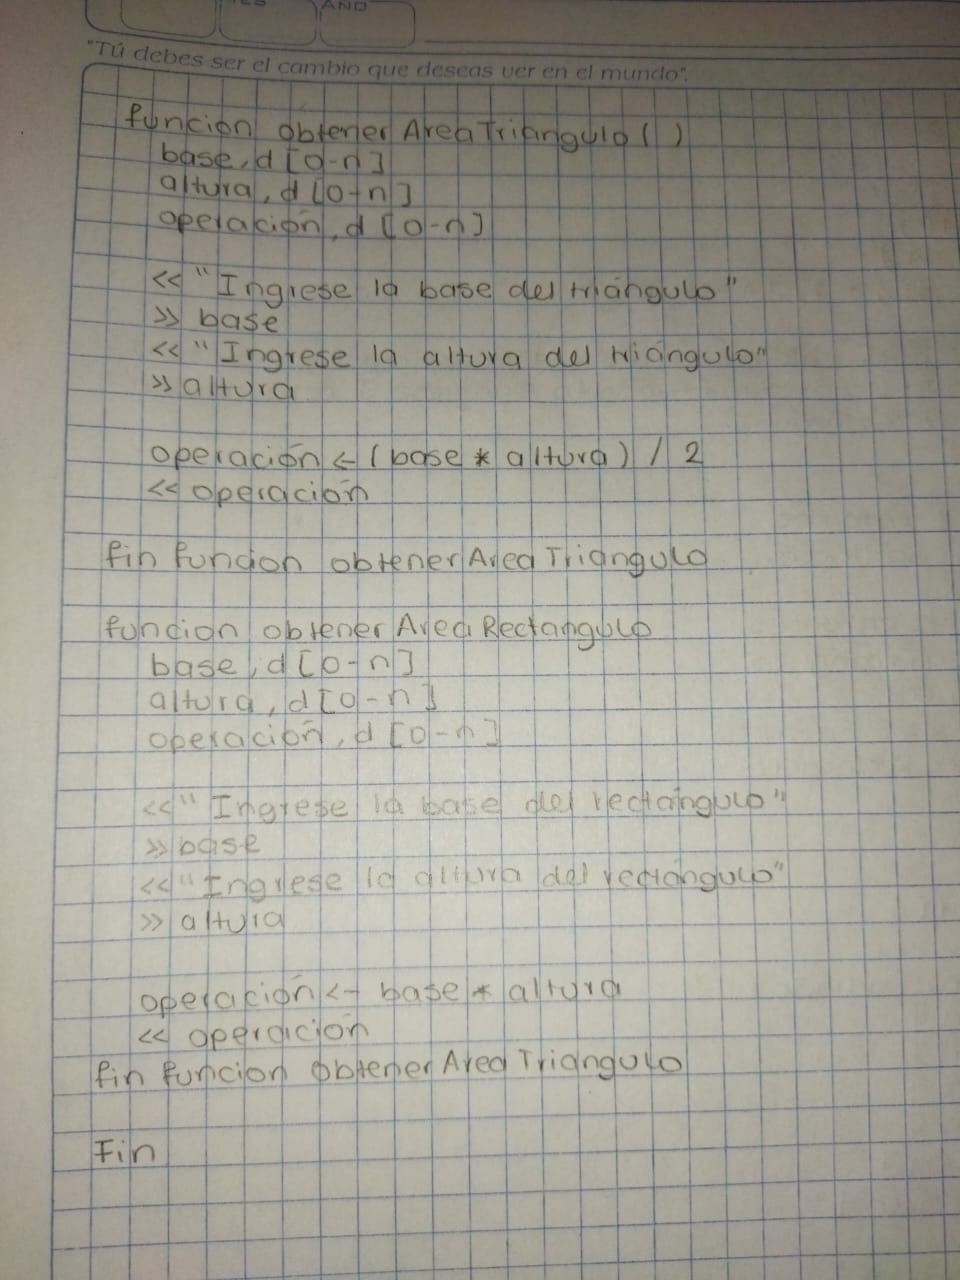 AÑO
"Tú debes ser el cambio que deseas ver en el mundo".
funcion obtener AreaTriangulo ( )
base, d [0-n]
altura, d [0-n]
operación, d [0-n]
<< "Ingrese la base del triángulo"
>> base
<< "Ingrese la altura del triángulo"
>> altura
operación <- (base * altura) / 2
<< operación
fin funcion obtener Area Triangulo
funcion obtener Area Rectangulo
base, d [0-n]
altura, d [0-n]
operación, d [0-n]
<< "Ingrese la base del rectángulo"
>> base
<< "Ingrese la altura del rectángulo"
>> altura
operación <- base * altura
<< operación
fin funcion obtener Area Triangulo
Fin